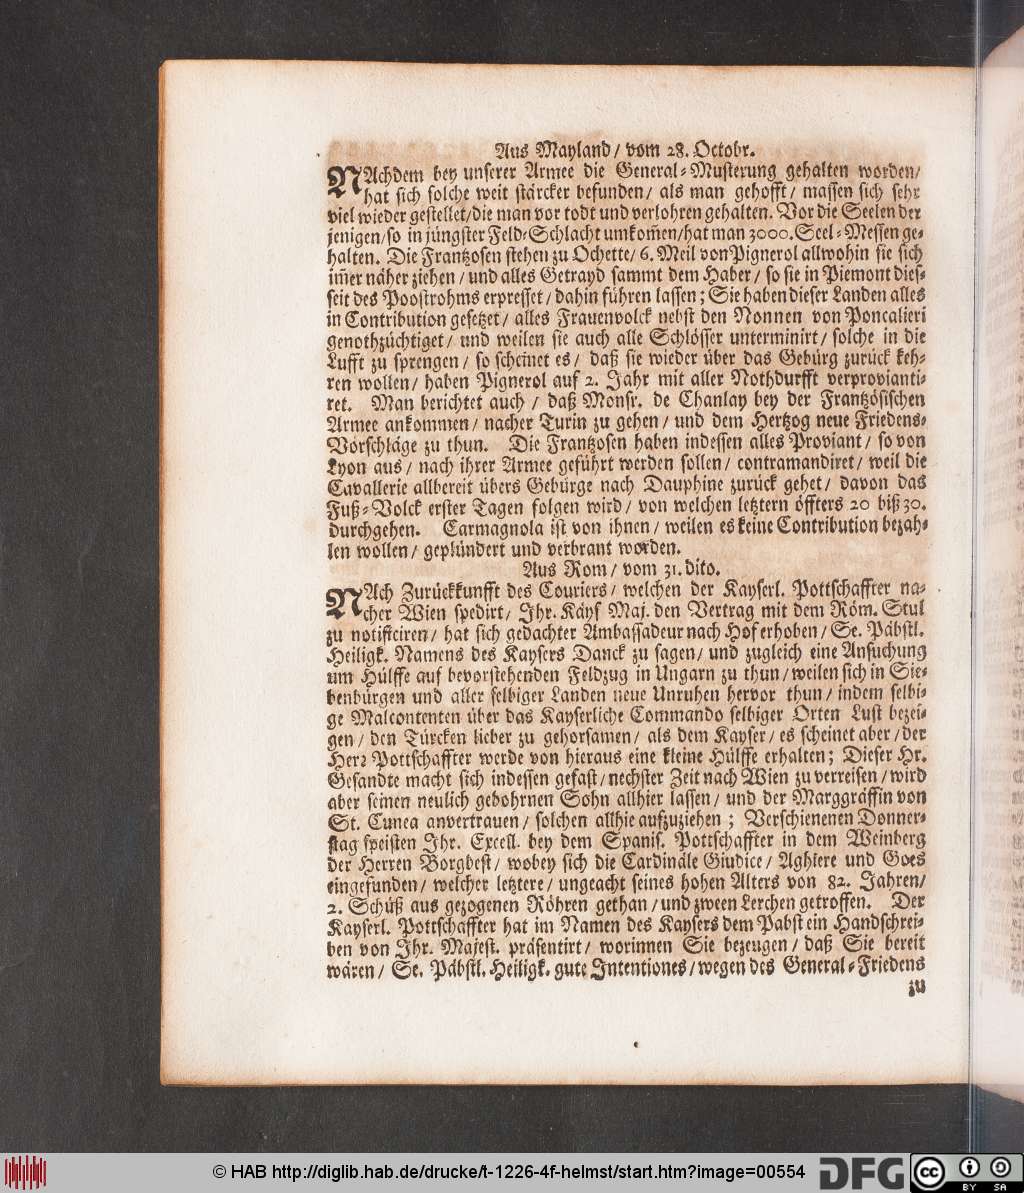 Aus Mayland / vom 28. Octobr.
NAchdem bey unserer Armee die General-Musterung gehalten worden/
hat sich solche weit stärcker befunden / als man gehofft / massen sich sehr
viel wieder gestellet/die man vor todt und verlohren gehalten. Vor die Seelen der
jenigen/so in jüngster Feld-Schlacht umkom̃en/hat man 3000. Seel-Messen ge-
halten. Die Frantzosen stehen zu Ochette/ 6. Meil von Pignerol allwohin sie sich
im̃er näher ziehen / und alles Getrayd sammt dem Haber / so sie in Piemont dies-
seit des Poostrohms erpresset / dahin führen lassen; Sie haben dieser Landen alles
in Contribution gesetzet / alles Frauenvolck nebst den Nonnen von Poncalieri
genothzüchtiget / und weilen sie auch alle Schlösser unterminirt / solche in die
Lufft zu sprengen / so scheinet es / daß sie wieder über das Gebürg zurück keh-
ren wollen / haben Pignerol auf 2. Jahr mit aller Nothdurfft verprovianti-
ret. Man berichtet auch / daß Monsr. de Chanlay bey der Frantzösischen
Armee ankommen / nacher Turin zu gehen / und dem Hertzog neue Friedens-
Vorschläge zu thun. Die Frantzosen haben indessen alles Proviant / so von
Lyon aus / nach ihrer Armee geführt werden sollen / contramandiret / weil die
Cavallerie allbereit übers Gebürge nach Dauphine zurück gehet / davon das
Fuß-Volck erster Tagen folgen wird / von welchen letztern öffters 20 biß 30.
durchgehen. Carmagnola ist von ihnen / weilen es keine Contribution bezah-
len wollen / geplündert und verbrant worden.
Aus Rom / vom 31. dito.
NAch Zurückkunfft des Couriers / welchen der Kayserl. Pottschaffter na-
cher Wien spedirt / Ihr. Käys Maj. den Vertrag mit dem Röm. Stul
zu notificiren / hat sich gedachter Ambassadeur nach Hof erhoben / Se. Päbstl.
Heiligk. Namens des Kaysers Danck zu sagen / und zugleich eine Ansuchung
um Hülffe auf bevorstehenden Feldzug in Ungarn zu thun / weilen sich in Sie-
benbürgen und aller selbiger Landen neue Unruhen hervor thun / indem selbi-
ge Malcontenten über das Kayserliche Commando selbiger Orten Lust bezei-
gen / den Türcken lieber zu gehorsamen / als dem Kayser / es scheinet aber / der
Herꝛ Pottschaffter werde von hieraus eine kleine Hülffe erhalten; Dieser Hr.
Gesandte macht sich indessen gefast / nechster Zeit nach Wien zu verreisen / wird
aber seinen neulich gebohrnen Sohn allhier lassen / und der Marggräffin von
St. Cunea anvertrauen / solchen allhie aufzuziehen ; Verschienenen Donner-
stag speisten Ihr. Excell. bey dem Spanis. Pottschaffter in dem Weinberg
der Herren Borghest / wobey sich die Cardinäle Giudice / Aghiere und Goes
eingefunden / welcher letztere / ungeacht seines hohen Alters von 82. Jahren /
2. Schüß aus gezogenen Röhren gethan / und zween Lerchen getroffen. Der
Kayserl. Pottschaffter hat im Namen des Kaysers dem Pabst ein Handschrei-
ben von Ihr. Majest. präsentirt / worinnen Sie bezeugen / daß Sie bereit
wären / Se. Päbstl. Heiligk. gute Intentiones / wegen des General-Friedens
zu
© HAB http://diglib.hab.de/drucke/t-1226-4f-helmst/start.htm?image=00554
DFG
cc
BY SA